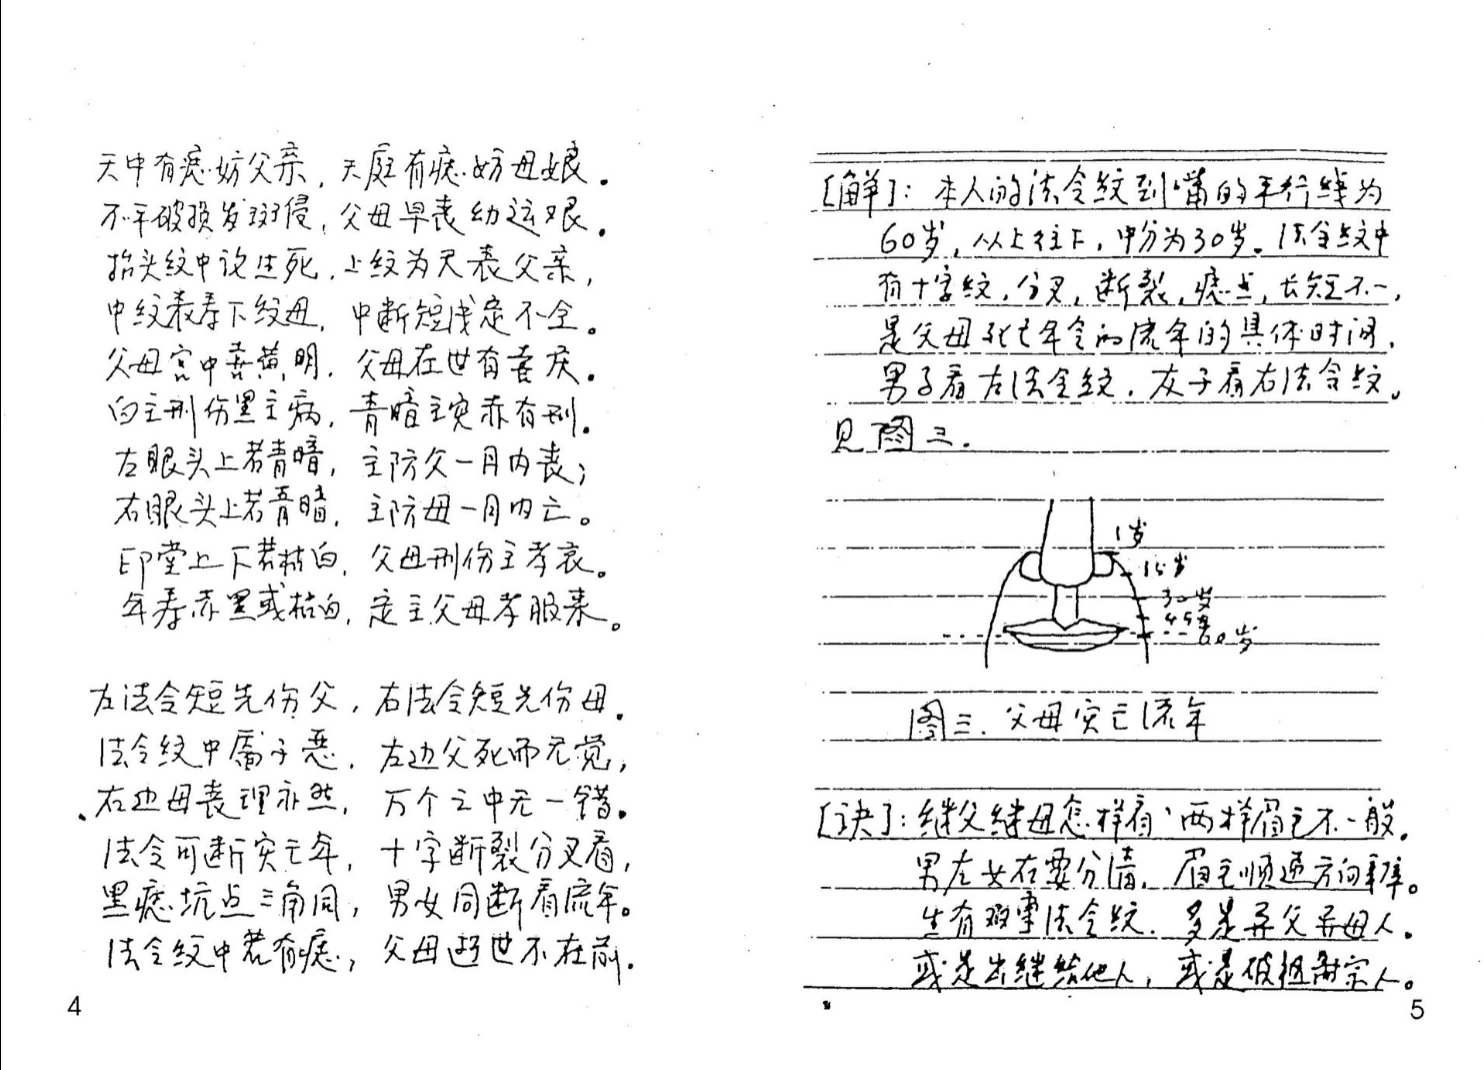 天中有痣妨父亲，天庭有痣妨母娘。
不平破损发斑侵，父母早丧幼运艰。
抬头纹中论生死，上纹为天表父亲，
中纹表寿下纹母，中断短浅定不全。
父母宫中喜黄明，父母在世有喜庆。
白主刑伤黑主病，青暗主灾赤有刑。
左眼头上若青暗，主防父一月内丧；
右眼头上若青暗，主防母一月内亡。
印堂上下若枯白，父母刑伤主孝哀。
年寿赤黑或枯白，定主父母孝服来。
左法令短先伤父，右法令短先伤母。
法令纹中属子恶，左边父死而无觉，
右边母丧理亦然，万个之中无一错。
法令可断灾亡年，十字断裂分叉看，
黑痣坑点三角同，男女同断看流年。
法令纹中若有痣，父母逝世不在前。
4
[解]：本人的法令纹到嘴的平行线为
60岁，从上往下，中分为30岁。法令纹中
有十字纹，分叉，断裂，痣点，长短不一，
是父母死亡年令的流年的具体时间，
男子看左法令纹，女子看右法令纹。
见图三.
1岁
15岁
30岁
45岁
60岁
图三.父母灾亡流年
[诀]：继父继母怎样看，两样眉毛不一般。
男左女右要分清，眉毛顺逆方向辨。
生有双重法令纹，多是异父异母人。
或是出继给他人，或是破祖离宗人。
5